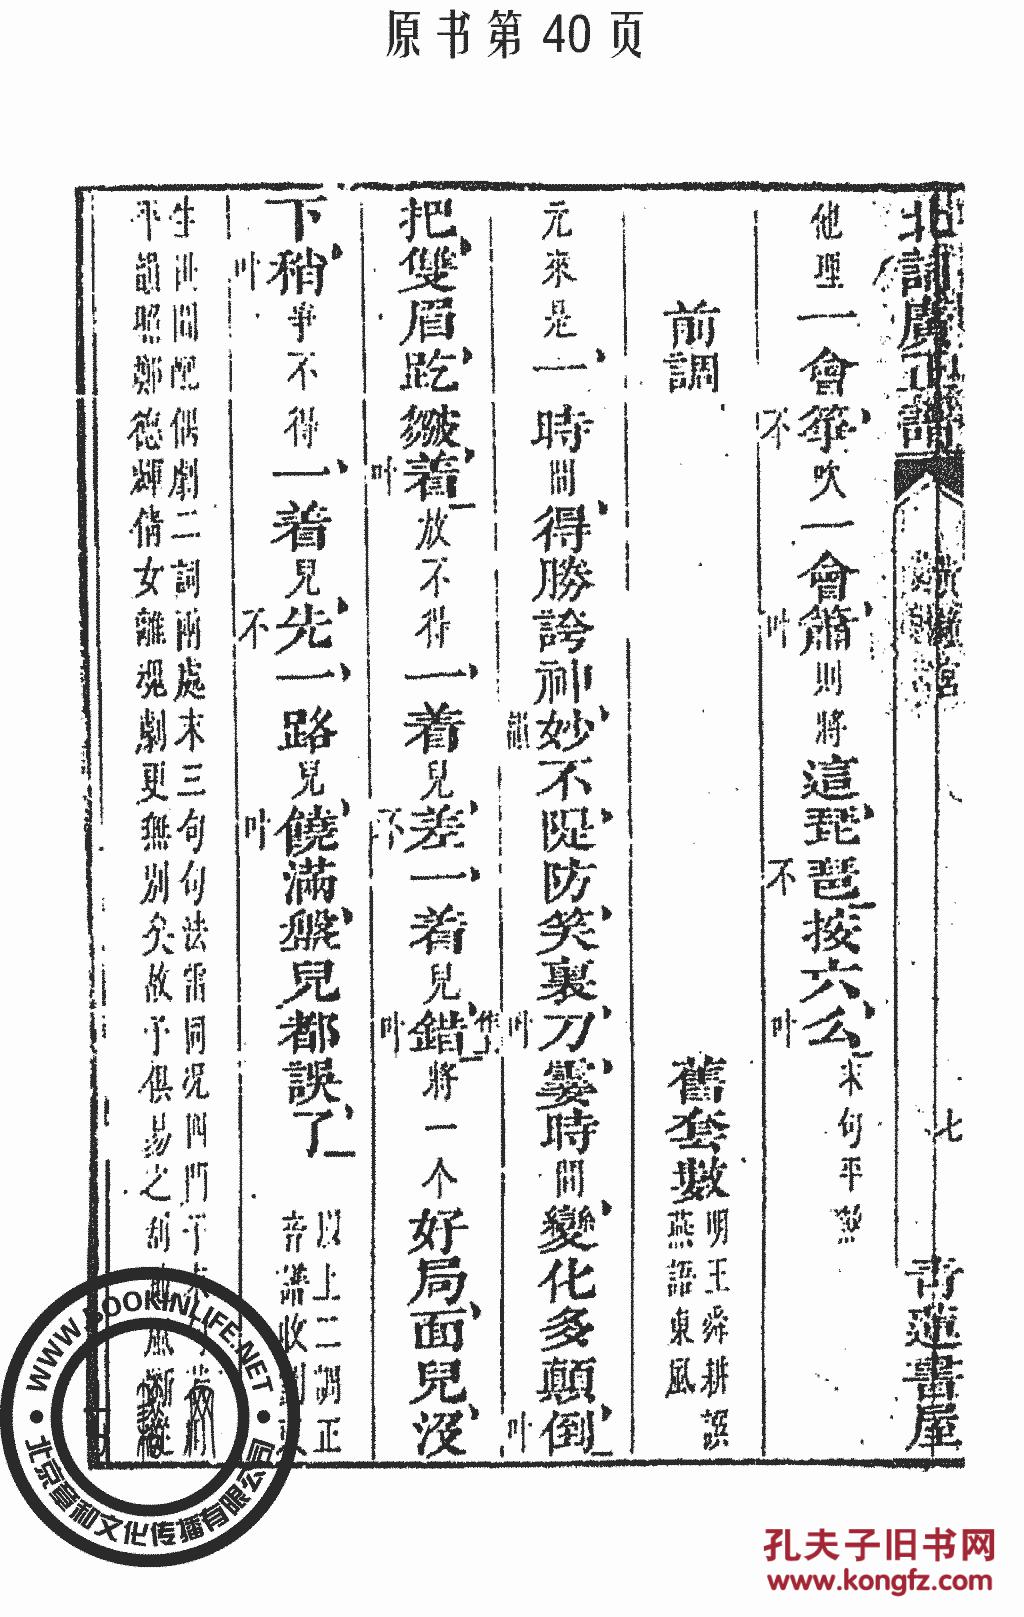 原书第 40 页
北詞廣正譜
黄鍾宮
七
青蓮書屋
他理一會箏不吹一會簫叶則將這琵琶不按六么叶末句平煞
前調 舊套數 明王舜耕誤
燕語東風
元來是一時間得勝誇神妙韻不隄防笑裏刀叶霎時間變化多顛倒叶
把雙眉趷皺着叶放不得一着兒差不一着兒錯叶作上將一个好局面兒沒
下稍叶爭不得一着兒先不一路兒饒叶滿盤兒都誤了 以上二調正
音譜收
生世間配偶劇二詞兩處末三句句法雷同况四門子
平韻昭鄭德輝倩女離魂劇更無別矣故予俱易之刮
WWW.BOOKINLIFE.NET
北京章和文化传播有限公司
孔夫子旧书网
www.kongfz.com